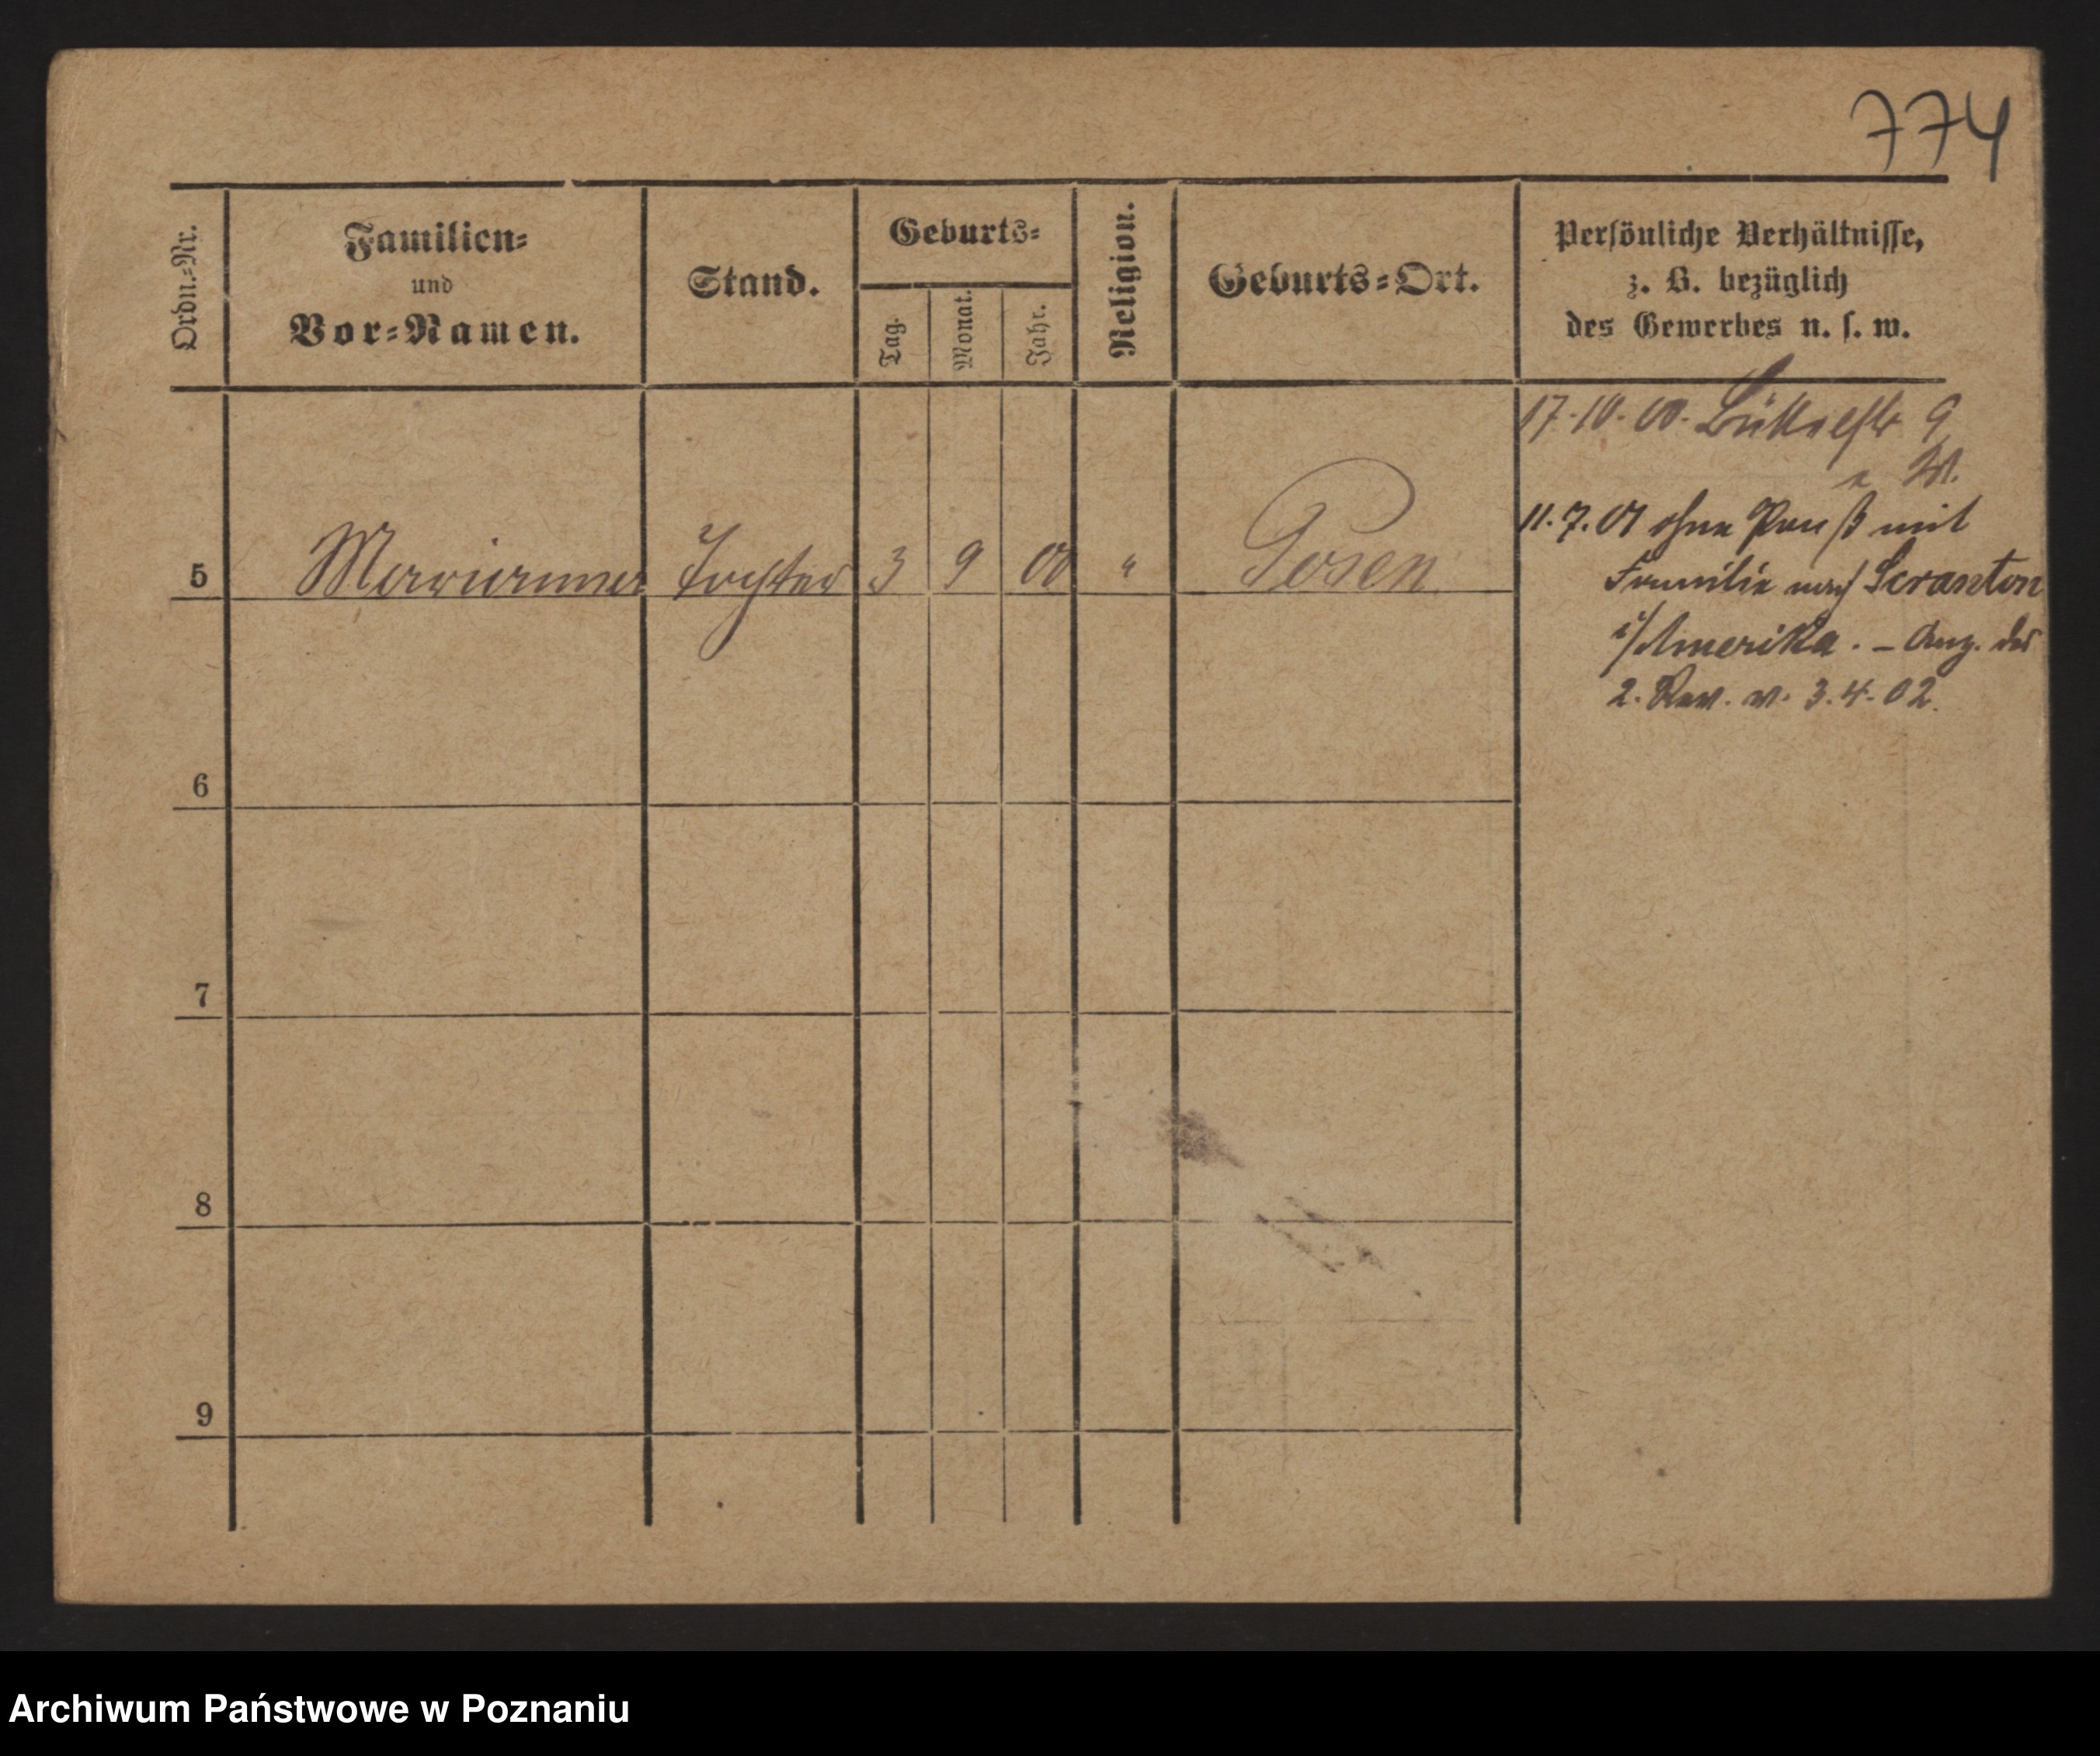 774
Ordn.=Nr.
Familien=
und
Vor=Namen.
Stand.
Geburts=
Tag.
Monat.
Jahr.
Religion.
Geburts=Ort.
Persönliche Verhältnisse,
z. B. bezüglich
des Gewerbes u. s. w.
17.10.00. 9
11.7.01 ohne mit
Familie nach Scranton
i/Amerika. – Ang. des
2. Rev. v. 3.4.02.
5 Marianna Tochter 3 9 00 " Posen
6
7
8
9
Archiwum Państwowe w Poznaniu